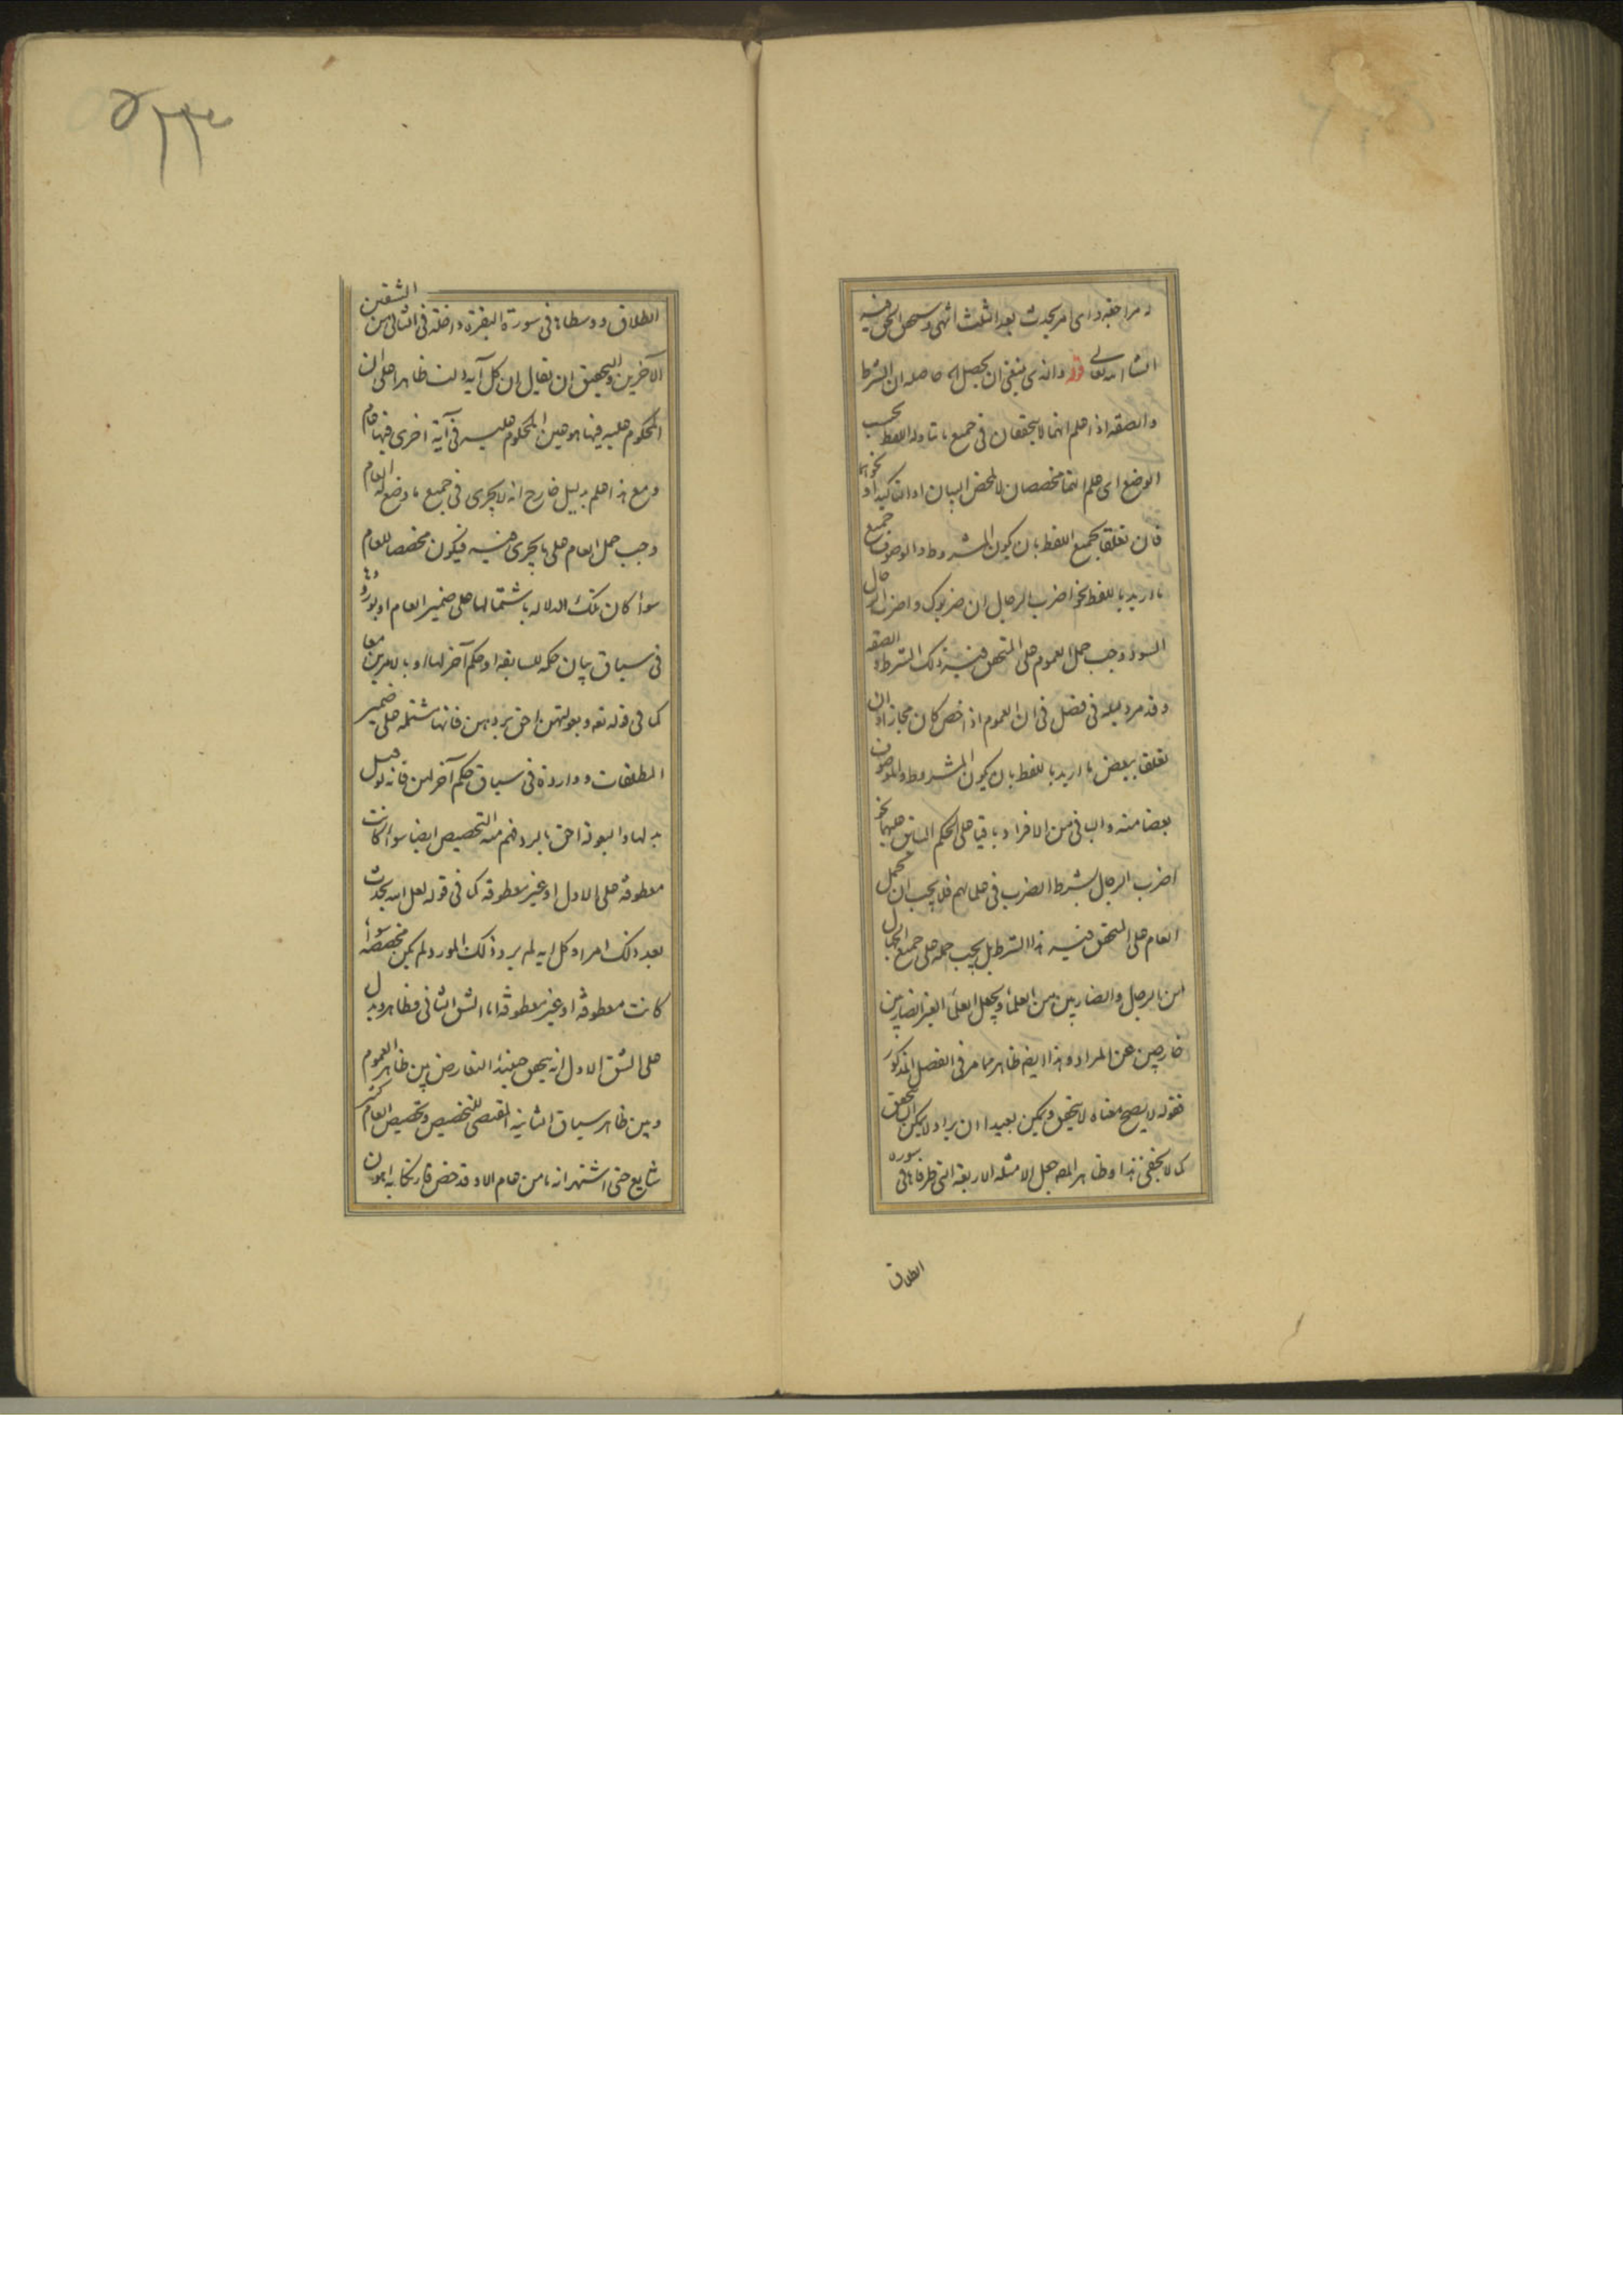 و مراجعة و اى امر يحدث بعد الثلث انتهى و سيتحقق الحق فيه
انشا الله تعالى قوله والذى ينبغى ان يحصل الخ حاصله ان الشرط
والصفة اذا علم انهما لا يتحققان فى جميع ما تناوله اللفظ بحسب
الوضع اى علم انهما مخصصان لا لمحض البيان او التاكيد او نحوهما
فان تعلقا بجميع اللفظ بان يكون المشروط والموصوف جميع
ما اريد باللفظ نحو اضرب الرجال ان ضربوك و اضرب الرجال
السود وجب حمل العموم على المتحقق فيه ذلك الشرط و الصفة
وقد مر دليله فى فصل فى ان العموم اذا خص كان مجازا و ان
تعلقا ببعض ما اريد باللفظ بان يكون المشروط والموصوف
بعضا منه والباقى من الافراد باقيا على الحكم السابق عليهما نحو
اضرب الرجال بشرط الضرب فى علمائهم فلا يجب ان يحمل
العام على المتحقق فيه هذا الشرط بل يجب حمله على جميع الجهال
من الرجل والضاربين من العلماء و يجعل العلماء الغير الضاربين
خارجين عن المراد و هذا ايضا ظاهر مما مر فى الفصل المذكور
فقوله لا يصح معناه لا يتحقق و يمكن بعيدا ان يراد لا يمكن التحقق
كما لا يخفى هذا و ظاهر المصـ جعل الامثلة الاربعة التى طرفاها فى سورة
الطلاق
الطلاق و وسطاها فى سورة البقرة داخلة فى الثانى من الشقين
الآخرين و التحقيق ان يقال ان كل آية دلت ظاهرا على ان
المحكوم عليه فيها هو عين المحكوم عليه فى آية اخرى فيها عام
و مع هذا علم بدليل خارج انه لا يجرى فى جميع ما وضع له العام
وجب حمل العام على ما يجرى فيه فيكون مخصصا للعام
سواء كان تلك الدلالة باشتمالها على ضمير العام او بورودها
فى سياق بيان حكمه للسابقة او حكم آخر لها او بالامرين معا
كما فى قوله تعـ و بعولتهن احق بردهن فانها مشتملة على ضمير
المطلقات و واردة فى سياق حكم آخر لهن فانه لو قيل
بدلها والبعولة احق بالرد فهم منه التخصيص ايضا سواء كانت
معطوفة على الاول او غير معطوفة كما فى قوله لعل الله يحدث
بعد ذلك امرا و كل اية لم يرد ذلك المورد لم يكن مخصصة سواء
كانت معطوفة او غير معطوفة اما الشق الثانى فظاهر و يدل
على الشق الاول انه يتحقق حينئذ التعارض بين ظاهر العموم
و بين ظاهر سياق الثانية المقتضى للتخصيص و تخصيص العام كثير
شايع حتى اشتهر انه ما من عام الا و قد خص فارتكابه اهون